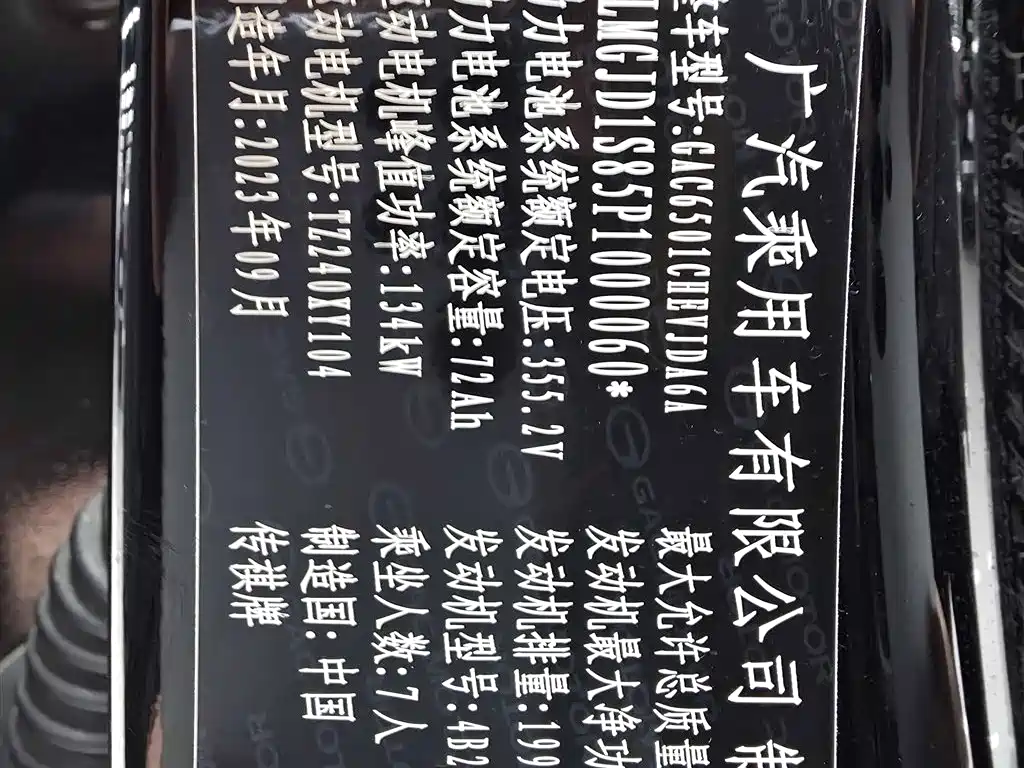 广汽乘用车有限公司
车型号:GAC6501CHEVJDA6A
最大允许总质量
LMGJD1S85P1000060*
发动机最大净功
力电池系统额定电压:355.2V
发动机排量:199
力电池系统额定容量:72Ah
发动机型号:4B2
驱动电机峰值功率:134kW
乘坐人数:7人
驱动电机型号:TZ240XY104
制造国:中国
制造年月:2023年09月
传祺牌